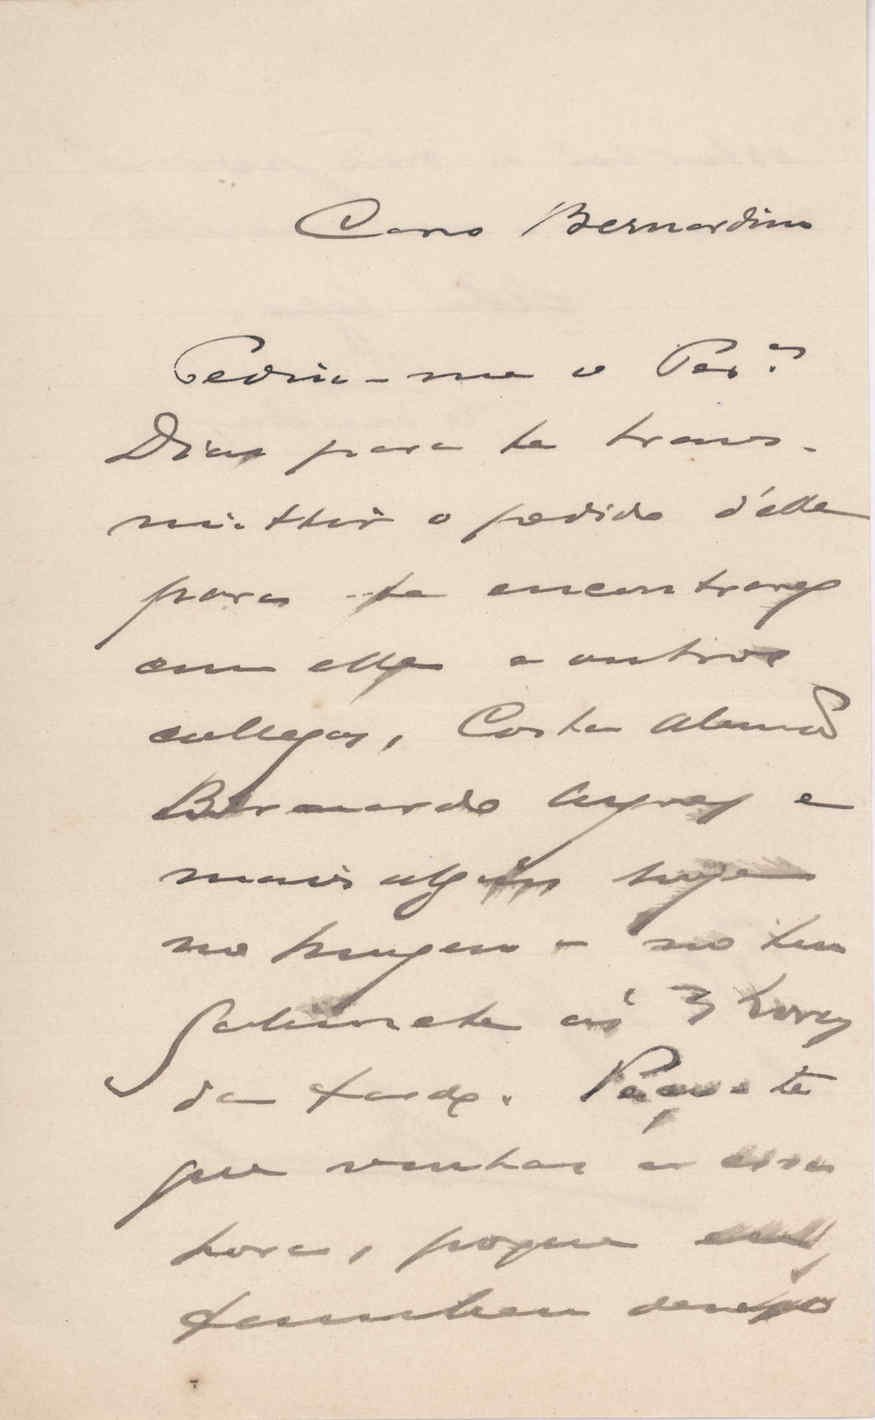 Caro Bernardino
Pediu-me o Per.ª
Dias para te trans-
mittir o pedido d'elle
para te encontrares
com elle e outros
collegas, Costa Alemão
Bernardo Ayres e
mais alguns hoje
no Museu - no teu
Gabinete ás 3 horas
da tarde. Peço-te
que venhas a essa
hora, porque eu
tambem desejo